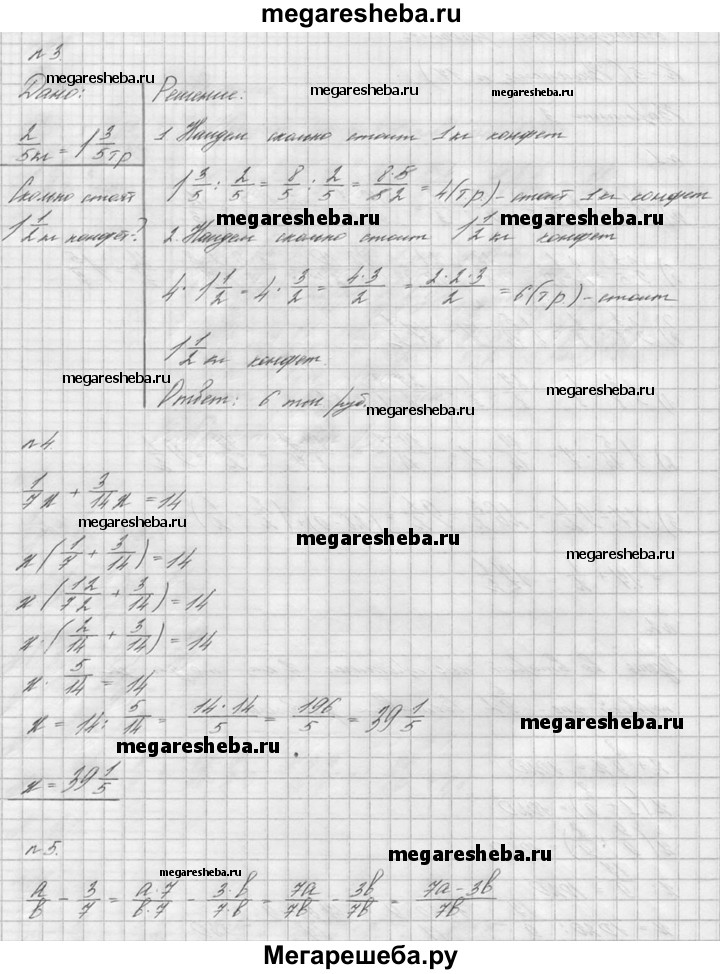 megaresheba.ru
n 3.
megaresheba.ru
Дано: Решение: megaresheba.ru megaresheba.ru
2/5 кг = 1 3/5 тр
1. Найдем сколько стоит 1 кг конфет
Сколько стоят 1 1/2 кг конфет?
1 3/5 : 2/5 = 8/5 : 2/5 = 8·5/5·2 = 4(тр) – стоит 1 кг конфет
megaresheba.ru megaresheba.ru
2. Найдем сколько стоит 1 1/2 кг конфет
4 · 1 1/2 = 4 · 3/2 = 4·3/2 = 2·2·3/2 = 6(тр.) – стоит
1 1/2 кг конфет.
megaresheba.ru megaresheba.ru
Ответ: 6 тыс руб. megaresheba.ru
n 4.
1/7 x + 3/14 x = 14
megaresheba.ru megaresheba.ru megaresheba.ru
x (1/7 + 3/14) = 14
x (1·2/7·2 + 3/14) = 14
x · (2/14 + 3/14) = 14
x · 5/14 = 14
x = 14 : 5/14 = 14·14/5 = 196/5 = 39 1/5
megaresheba.ru megaresheba.ru
x = 39 1/5
n 5.
megaresheba.ru megaresheba.ru
a/b - 3/7 = a·7/b·7 - 3·b/7·b = 7a/7b - 3b/7b = 7a-3b/7b
Мегарешеба.ру